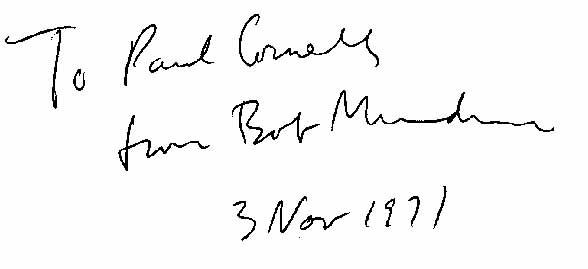 To Paul Cornell
from Bob
3 Nov 1971